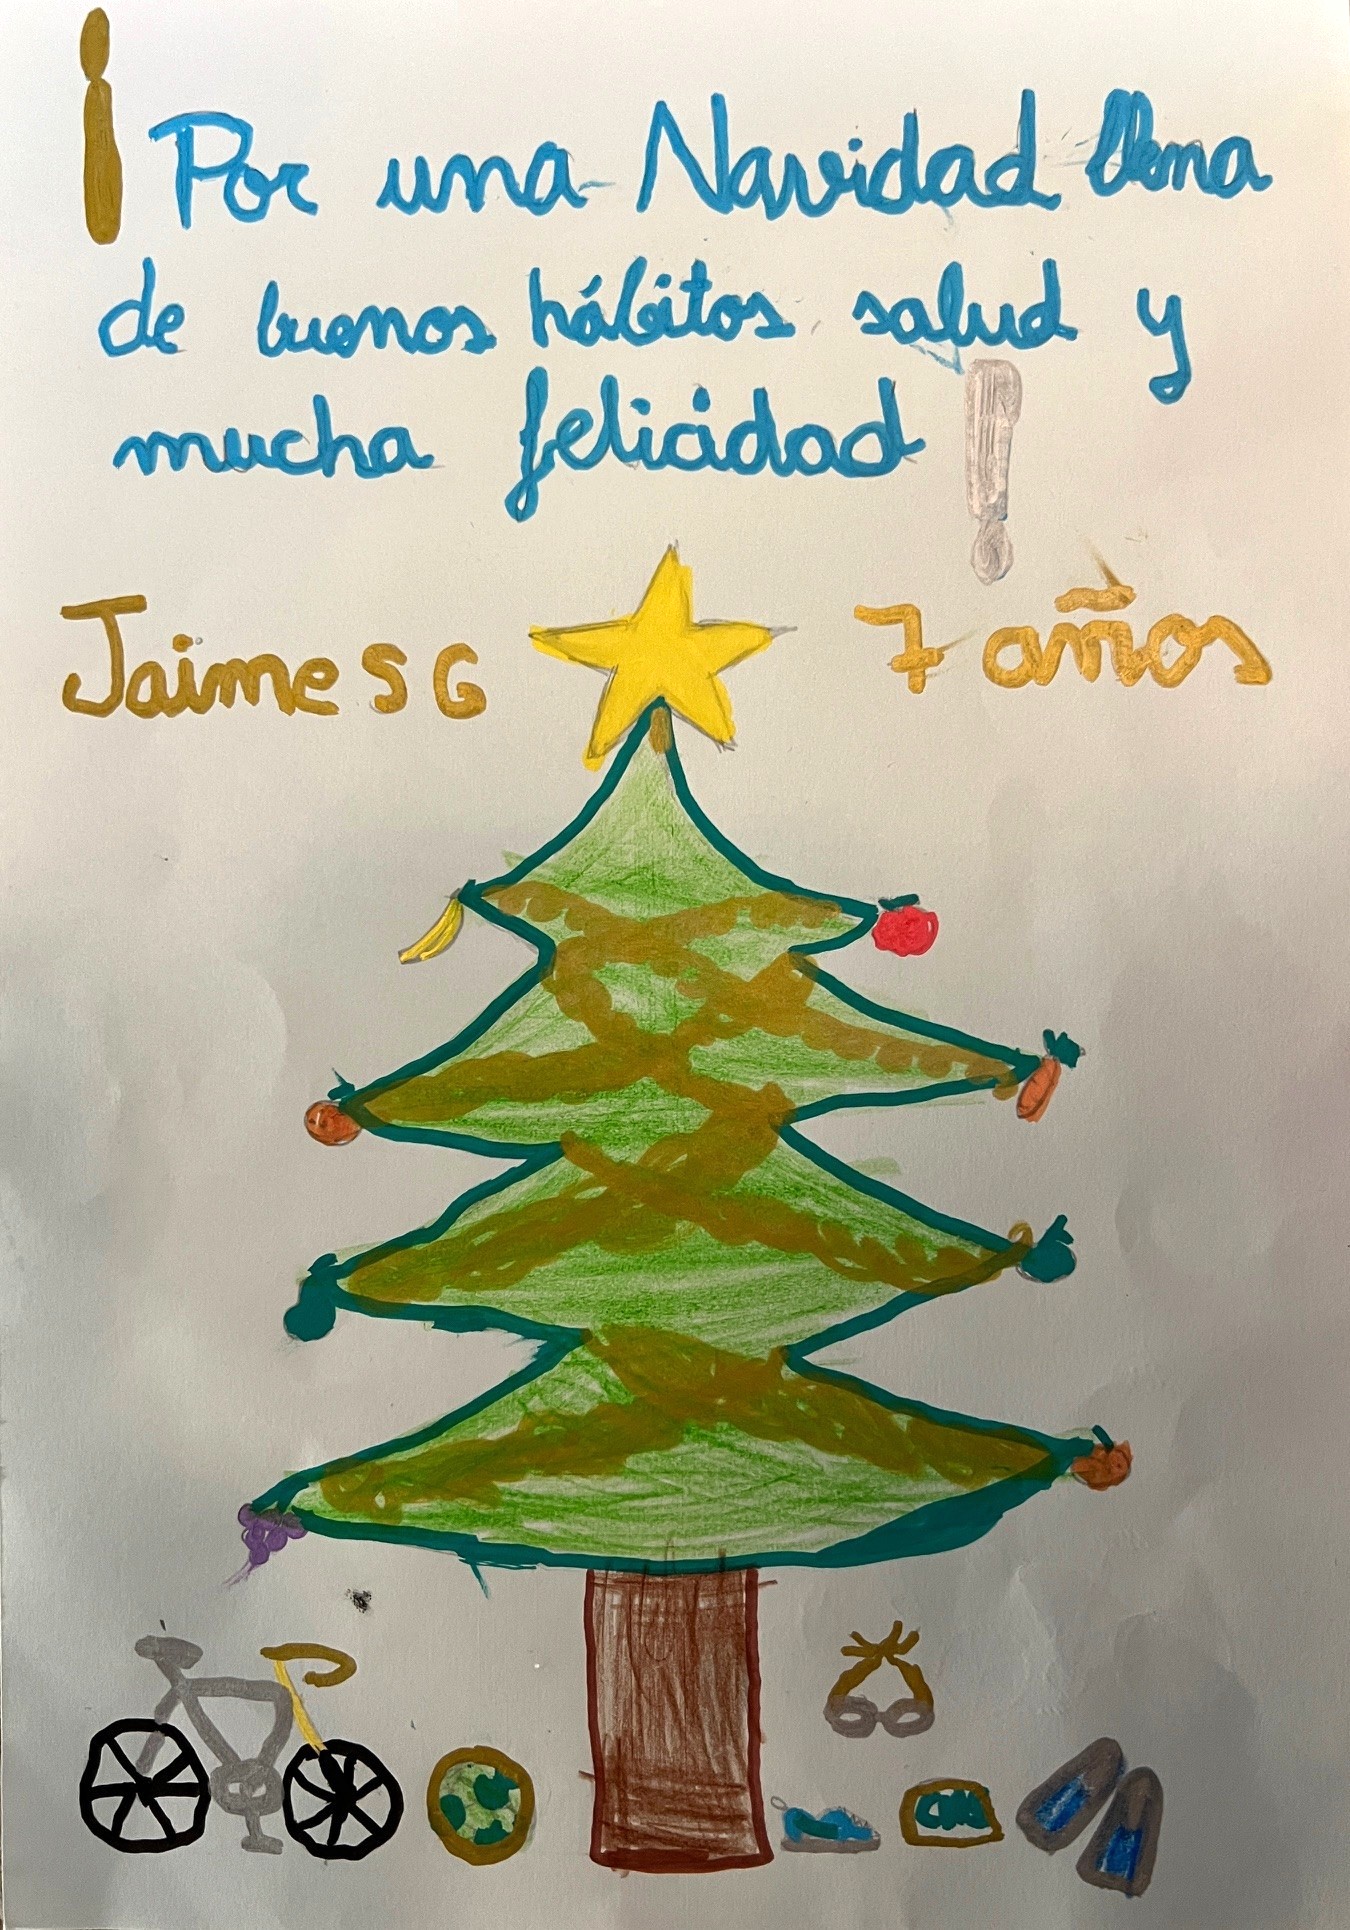 ¡Por una Navidad llena
de buenos hábitos salud y
mucha felicidad!
Jaime S G
7 años